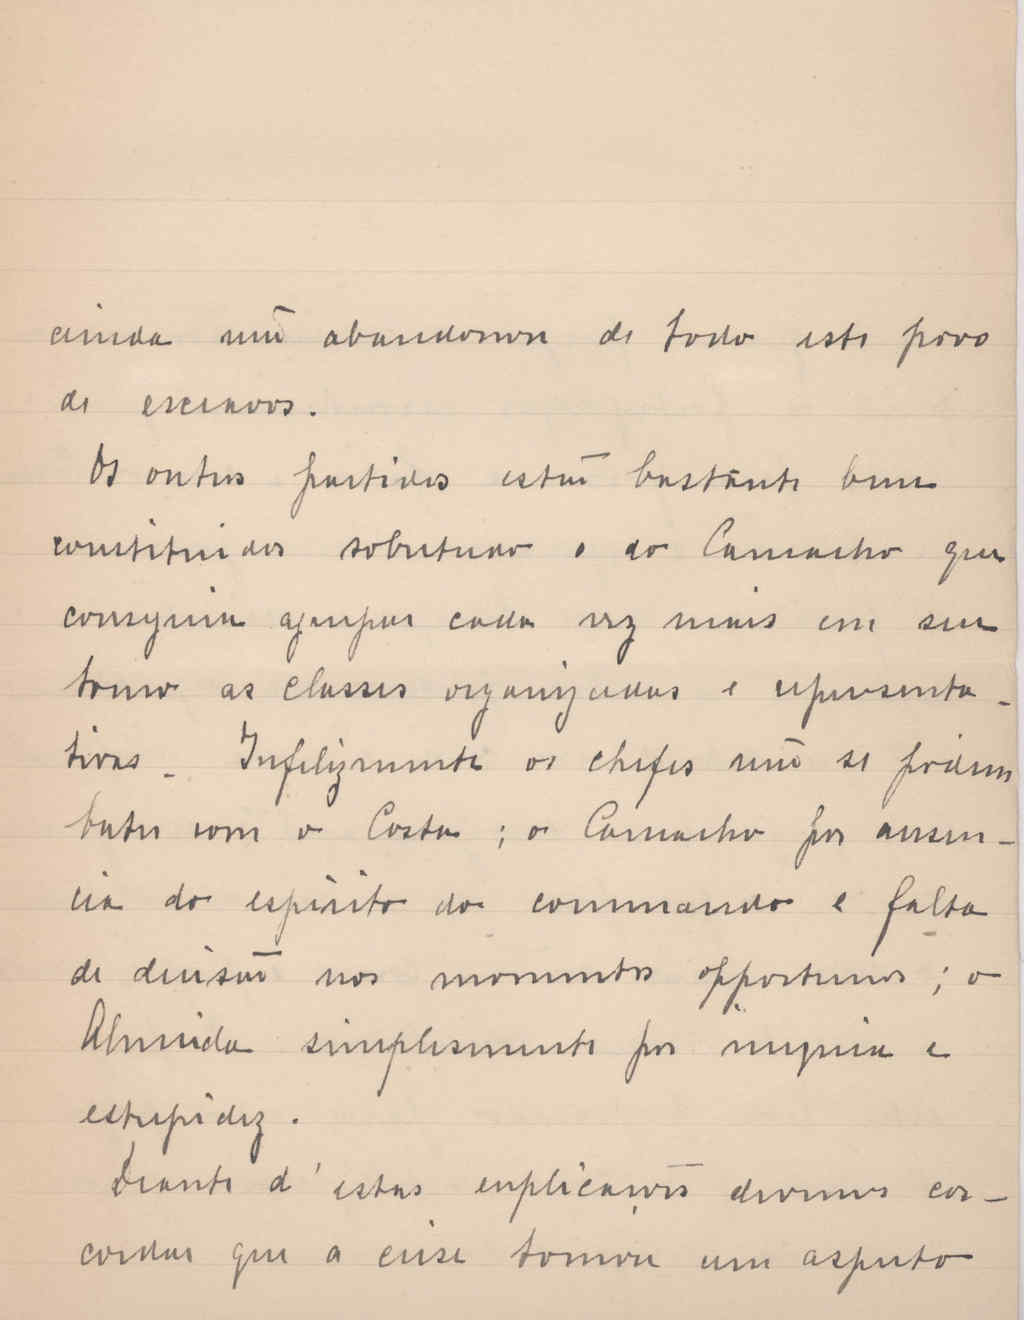 ainda não abandonou de todo este povo
de escravos.
Os outros partidos estão bastante bem
constituidos sobretudo o do Camacho que
conseguiu agrupar cada vez mais em seu
torno as classes organizadas e representa-
tivas. Infelizmente os chefes não se podem
bater com o Costa; o Camacho por ausen-
cia do espirito do commando e falta
de decisão nos momentos opportunos; o
Almeida simplesmente por inepcia e
estupidez.
Deante d'estas explicações devemos con-
cordar que a crise tomou um aspecto